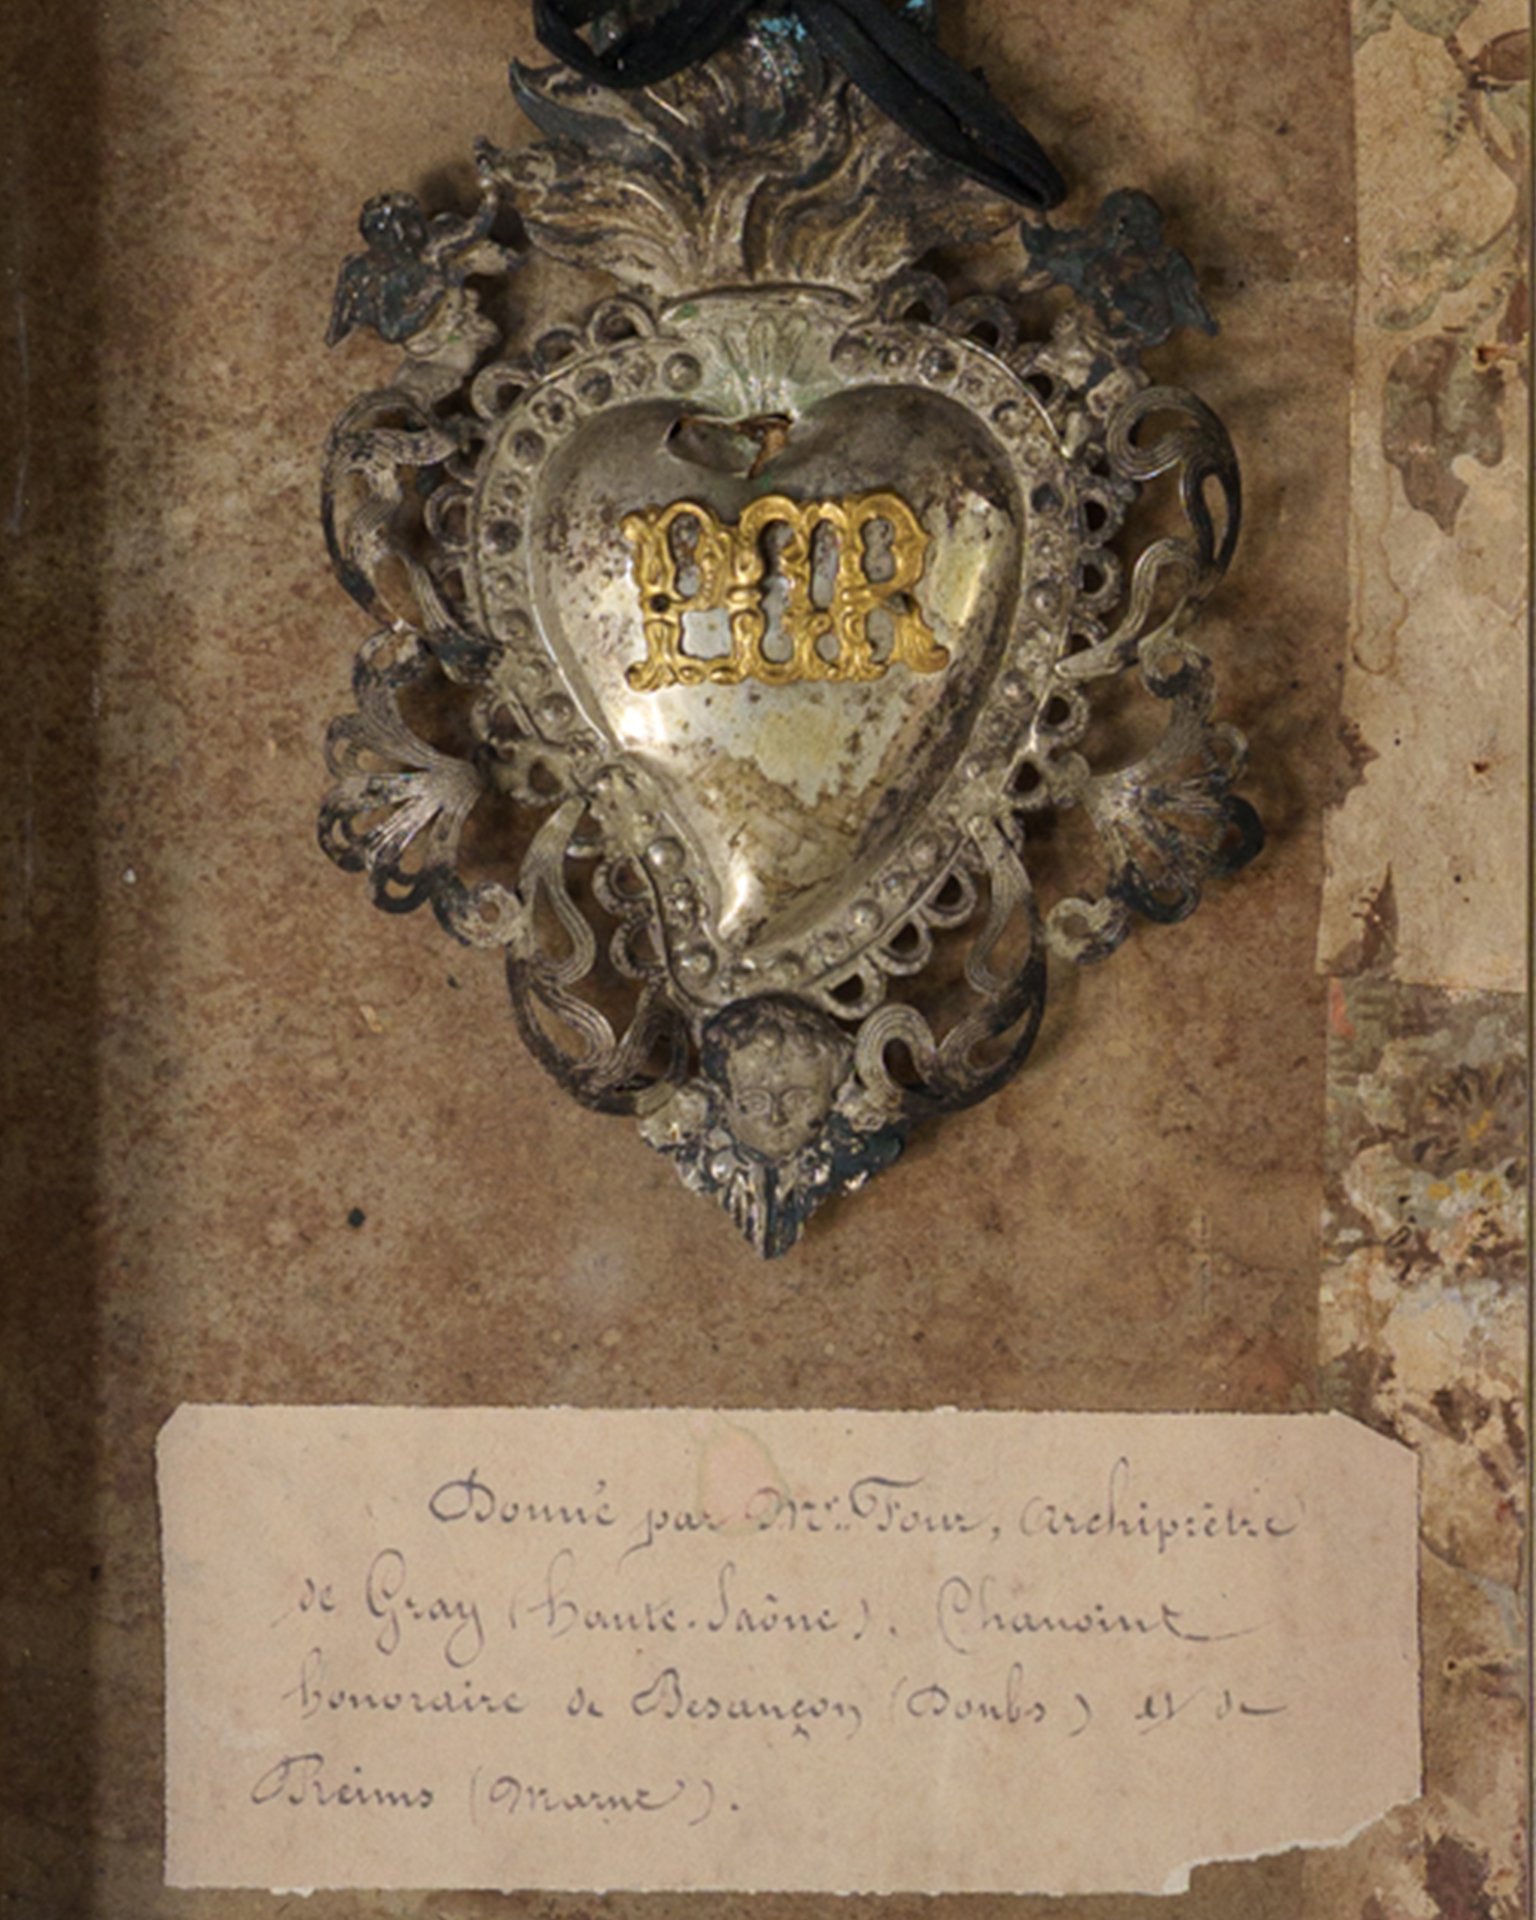 PGR
Donné par Mr. Four, Archiprêtre
de Gray (haute-Saône). Chanoine
honoraire de Besançon (Doubs) et de
Reims (Marne).